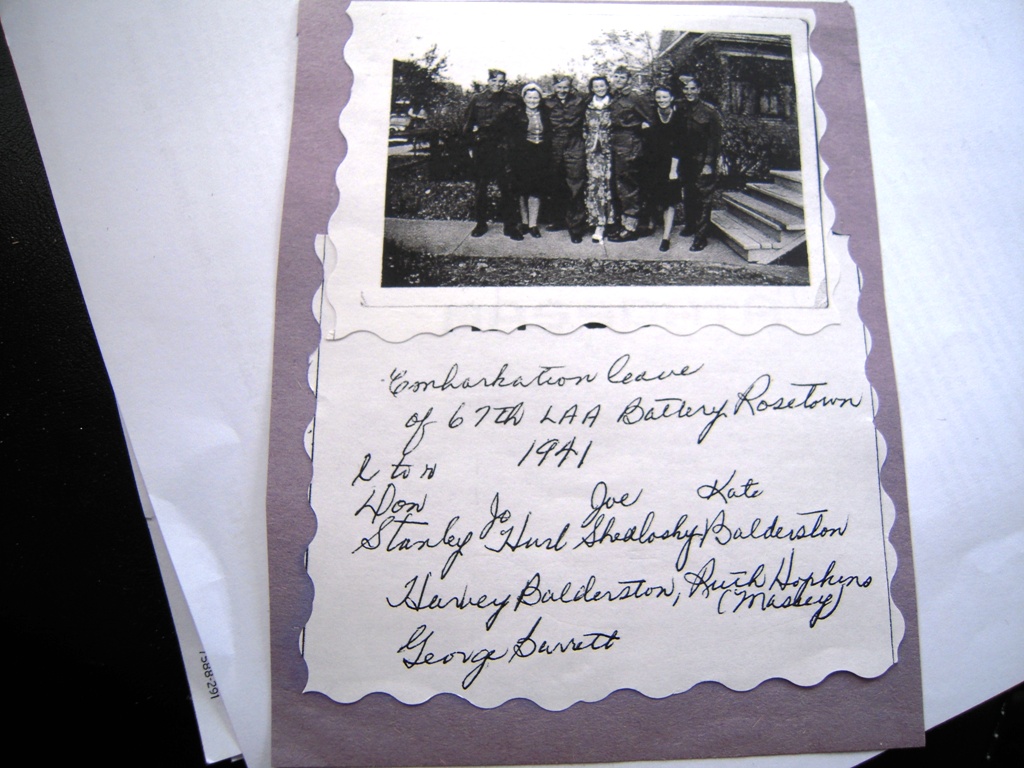 Embarkation leave
of 67th LAA Battery Rosetown
1941
L to R
Don Jo Joe Kate
Stanley Hurl Shedlosky Balderston
Harvey Balderston, Ruth Hopkins
(Massey)
George
7588-291